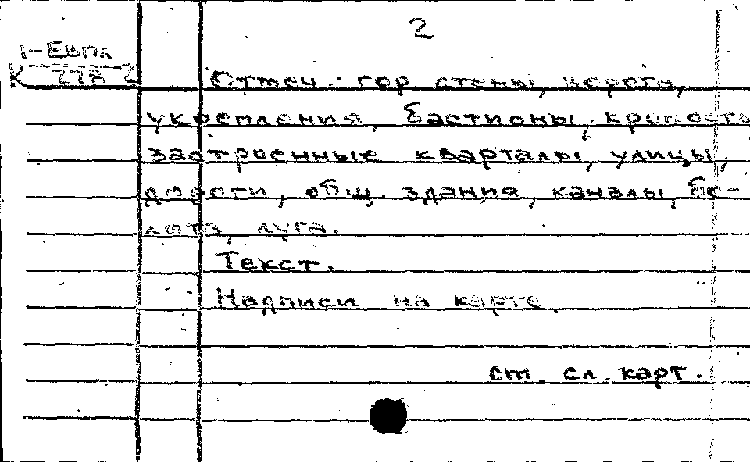 2
1-Евпл
К
Отмеч.: гор стены, ворота,
укрепления, бастионы, крепость
застроенные кварталы, улицы,
дороги, общ. здания, каналы, бо-
лота, луга.
Текст.
Надписи на карте.
ст. сл. карт.